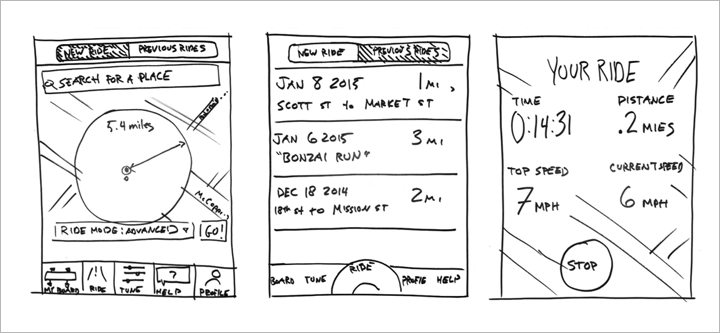 NEW RIDE PREVIOUS RIDES
SEARCH FOR A PLACE
5.4 miles
RIDE MODE: ADVANCED GO!
MY BOARD RIDE TUNE HELP PROFILE
NEW RIDE PREVIOUS RIDES
JAN 8 2015 1 MI,
SCOTT ST to MARKET ST
JAN 6 2015 3 MI
"BONZAI RUN"
DEC 18 2014 2 MI
18th ST to MISSION ST
BOARD TUNE RIDE PROFIE HELP
YOUR RIDE
TIME DISTANCE
0:14:31 .2 MIES
TOP SPEED CURRENT SPEED
7 MPH 6 MPH
STOP